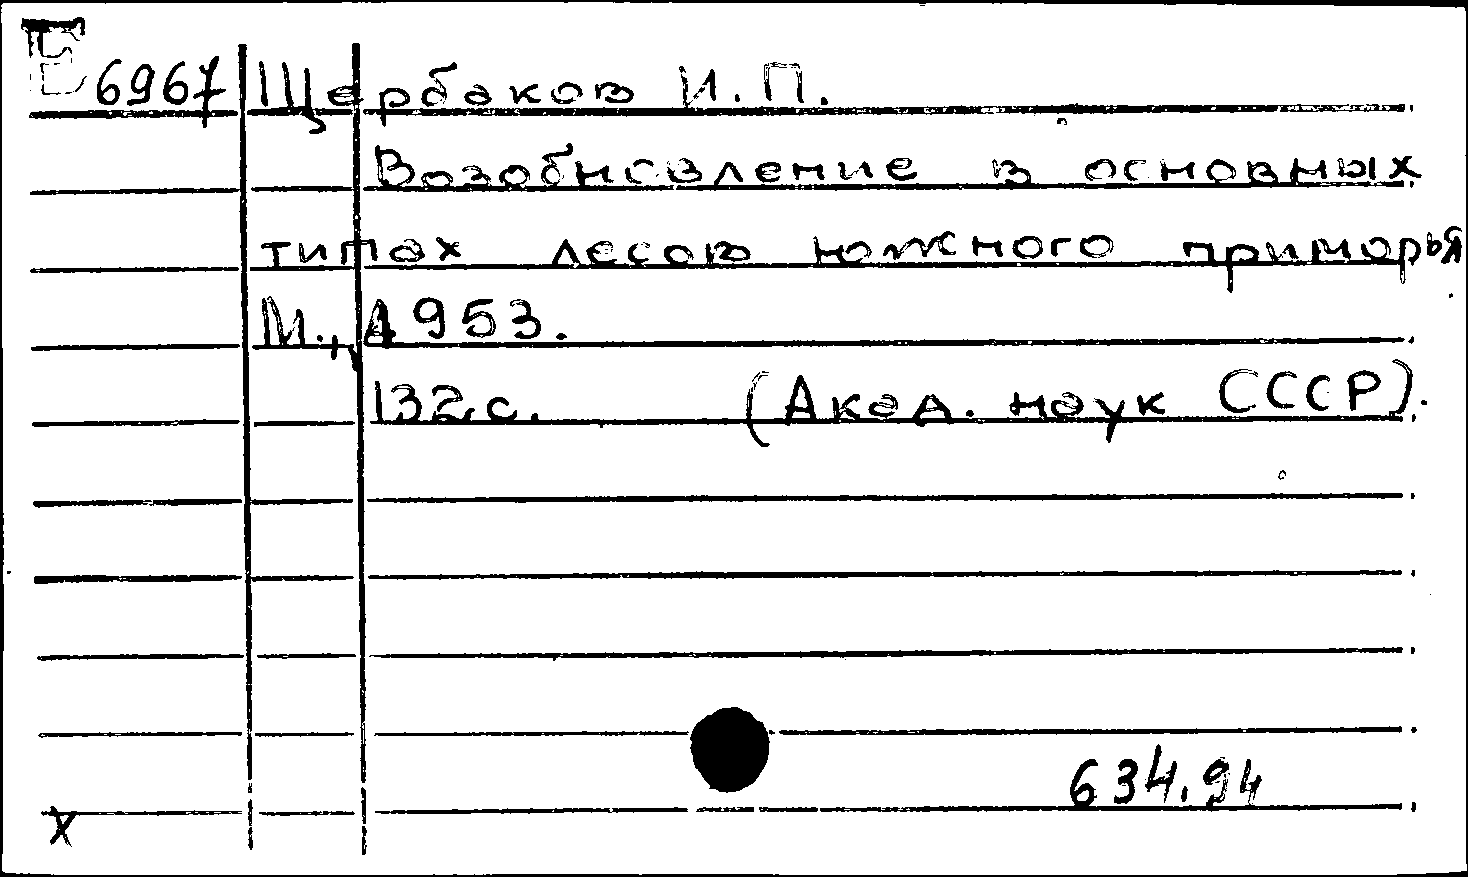 Б 6967 Щербаков И.П.
Возобновление в основных
типах лесов южного приморья
М., 1953.
132 с. (Акад. наук СССР).
634.94
х